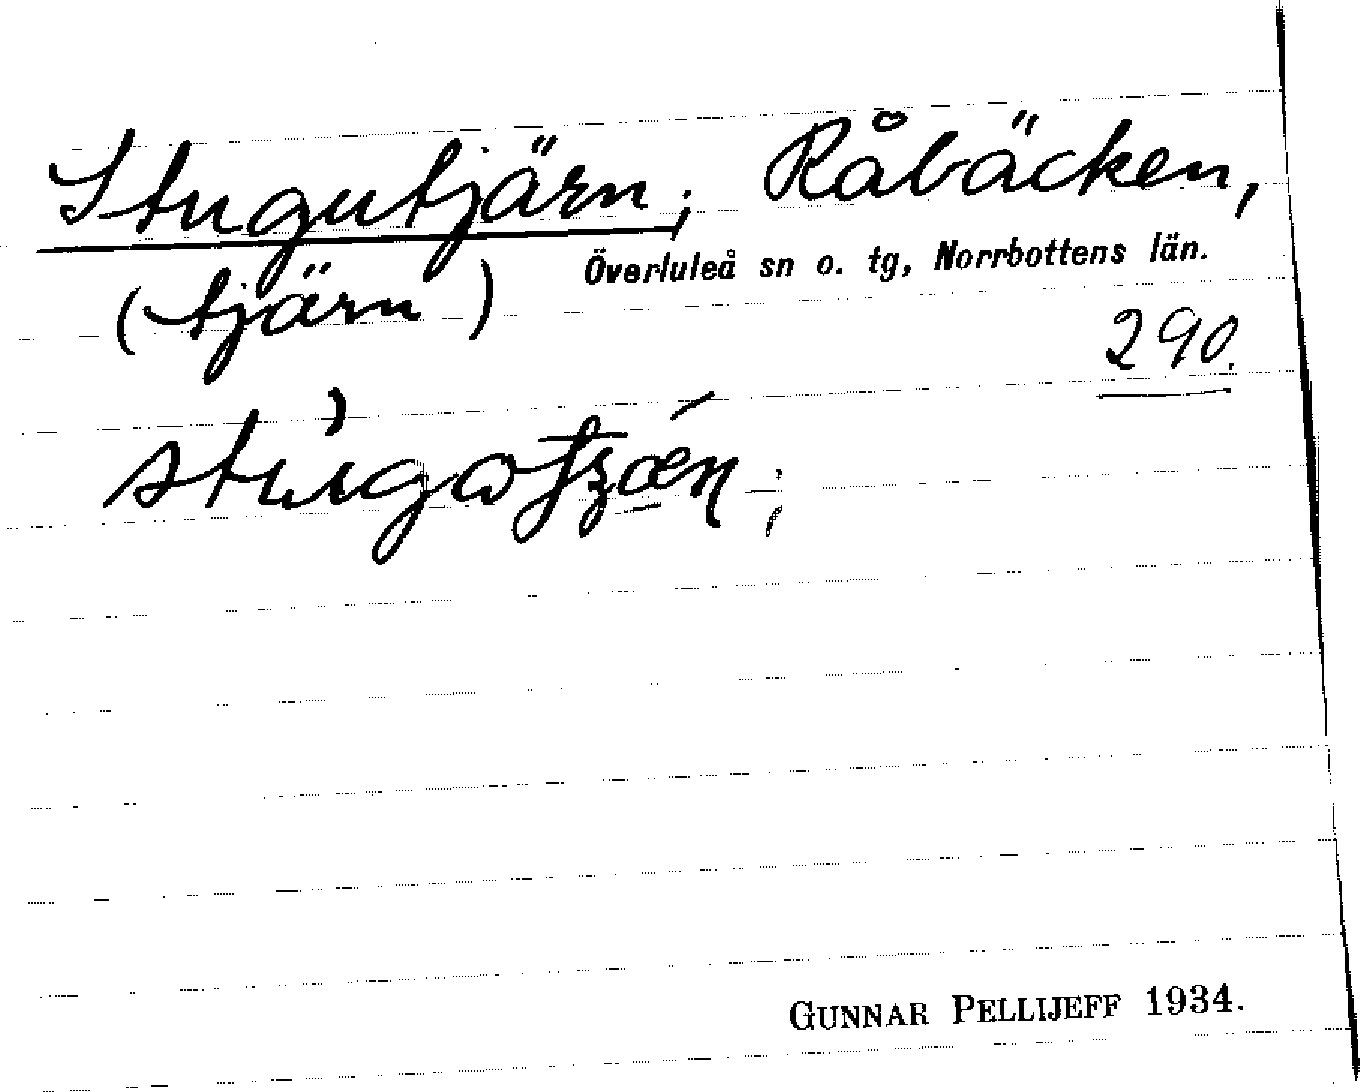 Stugutjärn; Råbäcken,
Överluleå sn o. tg, Norrbottens län.
(tjärn)
290.
GUNNAR PELLIJEFF 1934.